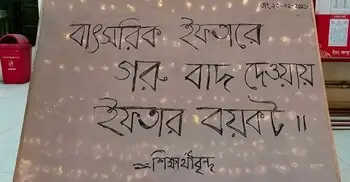 বাৎসরিক ইফতারে
গরু বাদ দেওয়ায়
ইফতার বয়কট ।।
=শিক্ষার্থীবৃন্দ